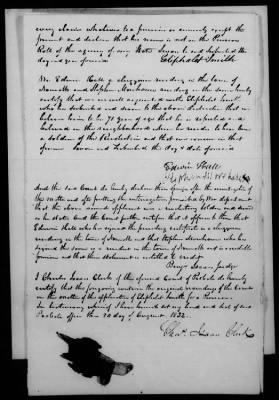 every claim whatsoever to a pension or annuity except the
present and declare that his name is not on the Pension
Roll of the agency of any State Sworn to and subscribed the
day and year aforesaid Eliphalet Smith
We Edwin Hall a clergyman residing in the town of
and Stephen residing in the same hereby
certify that we are well acquainted with Eliphalet Smith
who has subscribed and sworn to the above declaration that we
believe him to be 71 years of age that he is reputed and
believed in the neighbourhood where he resides to have been
a soldier of the Revolution and that we concur in that
opinion Sworn and Subscribed the day & date aforesaid
Edwin Hall
And the said Court do hereby declare their opinion after the investigation of
the matter and after putting the interrogatories prescribed by War department
that the above named applicant was a revolutionary soldier and served
as he states And the Court further certifies that it appears to them that
Edwin Hall who has signed the preceding certificate is a clergyman
resident in the town of and that Stephen who has
signed the same is a resident in the town of and is a credible
person and that their statement is entitled to credit
Judge
I Charles Isaacs Clerk of the aforesaid Court of Probate do hereby
certify that the foregoing contains the original proceedings of the Court
in the matter of the application of Eliphalet Smith for a Pension
In testimony whereof I have hereunto set my hand and seal of said
Probate office this 20 day of August 1832
Chas Isaacs Clerk